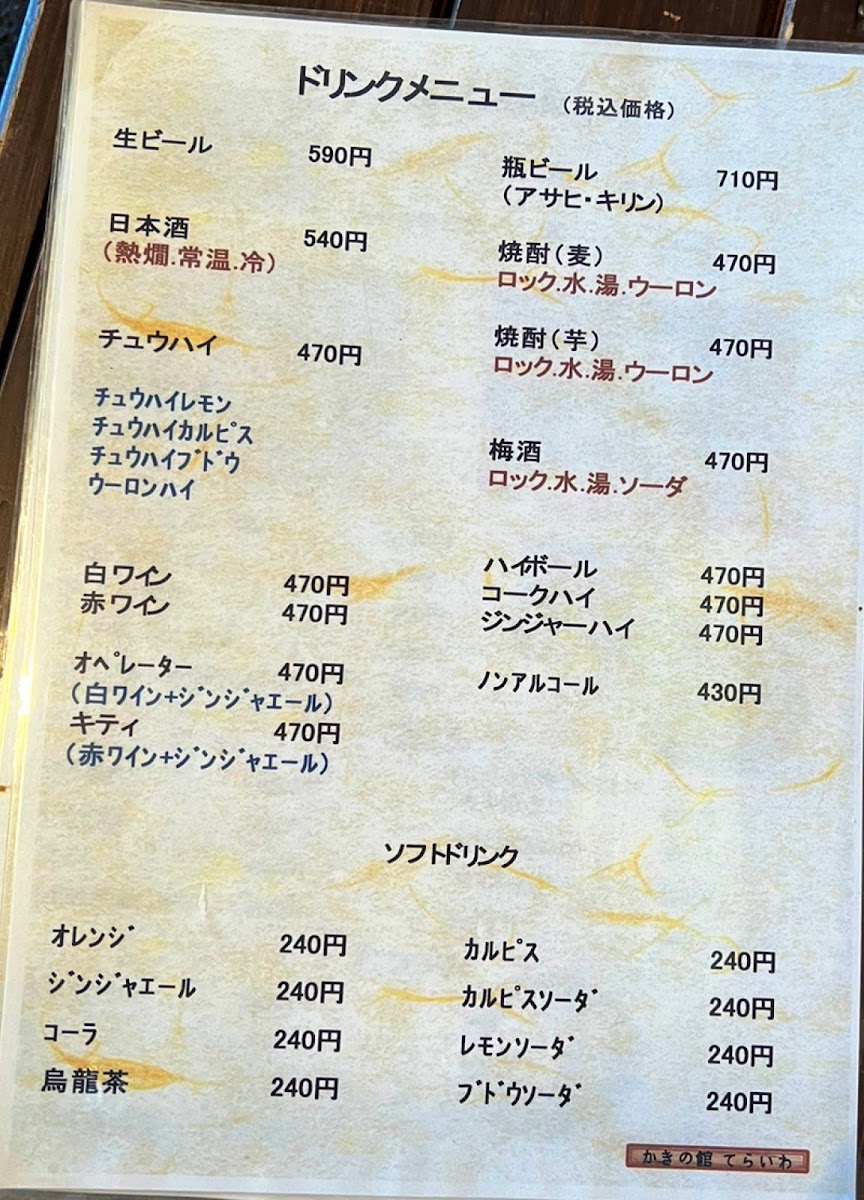 ドリンクメニュー (税込価格)
生ビール 590円
日本酒 540円
(熱燗.常温.冷)
チュウハイ 470円
チュウハイレモン
チュウハイカルピス
チュウハイブドウ
ウーロンハイ
白ワイン 470円
赤ワイン 470円
オペレーター 470円
(白ワイン+ジンジャエール)
キティ 470円
(赤ワイン+ジンジャエール)
瓶ビール 710円
(アサヒ・キリン)
焼酎(麦) 470円
ロック.水.湯.ウーロン
焼酎(芋) 470円
ロック.水.湯.ウーロン
梅酒 470円
ロック.水.湯.ソーダ
ハイボール 470円
コークハイ 470円
ジンジャーハイ 470円
ノンアルコール 430円
ソフトドリンク
オレンジ 240円
ジンジャエール 240円
コーラ 240円
烏龍茶 240円
カルピス 240円
カルピスソーダ 240円
レモンソーダ 240円
ブドウソーダ 240円
かきの館 てらいわ